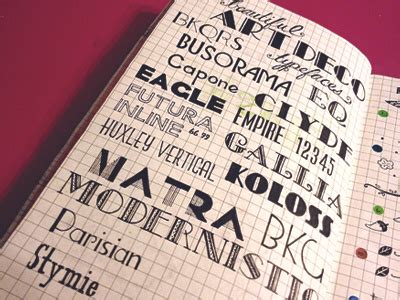 Beautiful
ART DECO
typefaces
BKQRS
BUSORAMA
Capone
EQ
EAGLE
CLYDE
FUTURA
INLINE
EMPIRE
12345
HUXLEY VERTICAL
GALLIA
MATRA
KOLOSS
MODERNISTIC
BKG
Parisian
Stymie